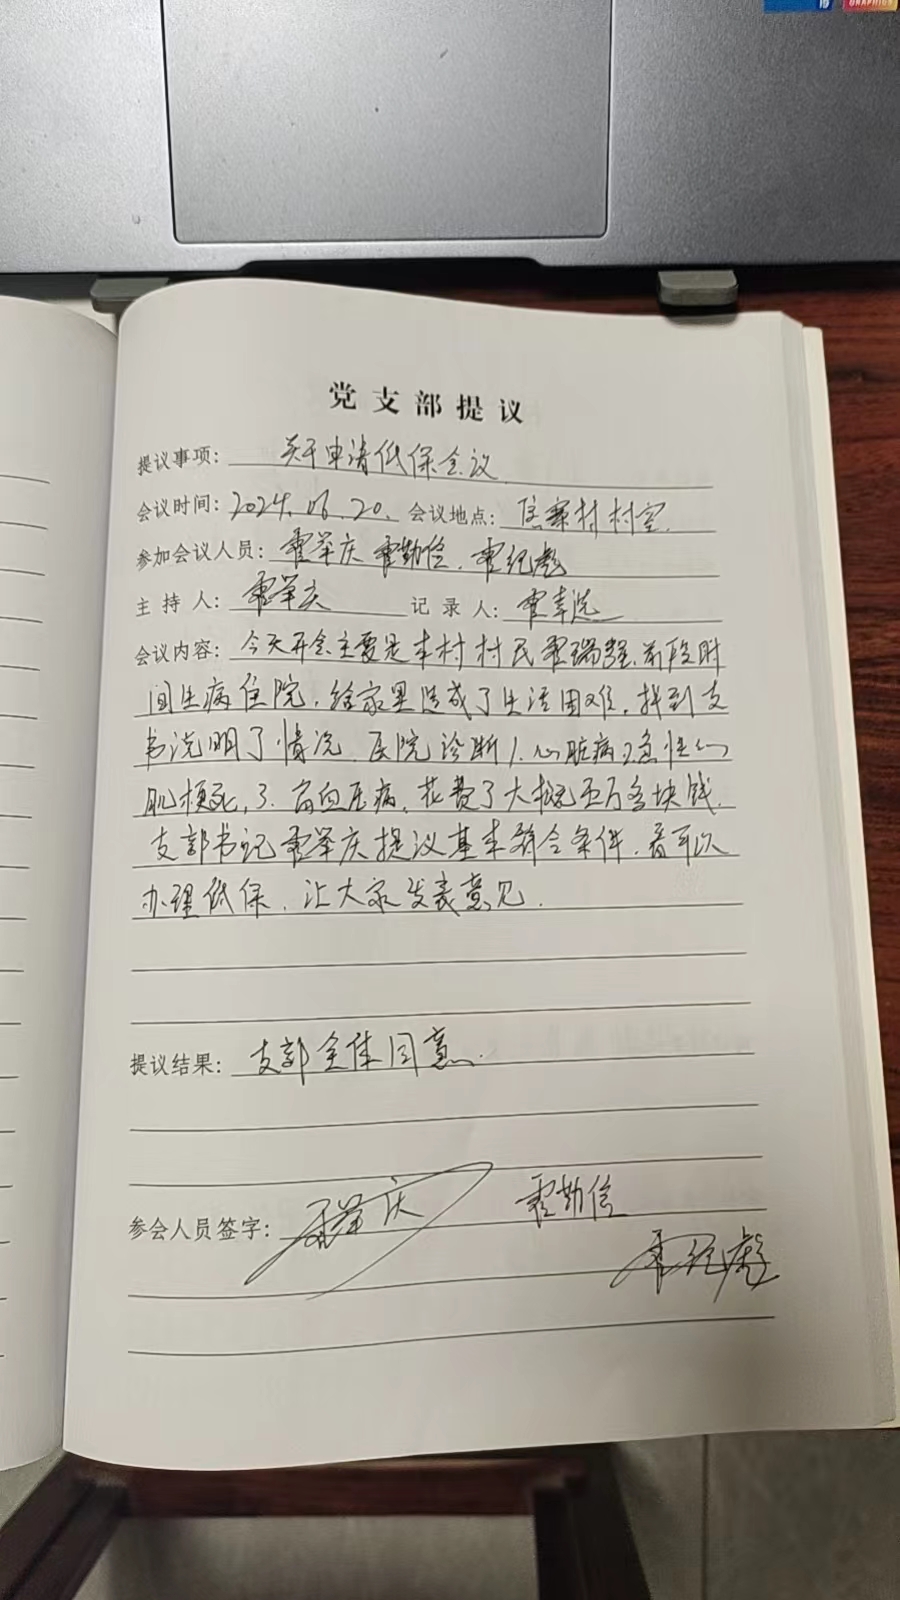 GRAPHICS
党支部提议
提议事项： 关于申请低保会议
会议时间：2024.06.20. 会议地点： 村村室.
参加会议人员：霍举庆 霍勤信. 霍纪彪
主持人：霍举庆 记录人：霍
会议内容：今天开会主要是本村村民霍瑞 前段时
间生病住院，给家里造成了生活困难，找到支
书说明了情况. 医院诊断1.心脏病2急性心
肌梗死，3.高血压病，花费了大概五万多块钱.
支部书记霍举庆提议基本符合条件，看可以
办理低保，让大家发表意见.
提议结果： 支部全体同意.
参会人员签字： 霍举庆 霍勤信
霍纪彪